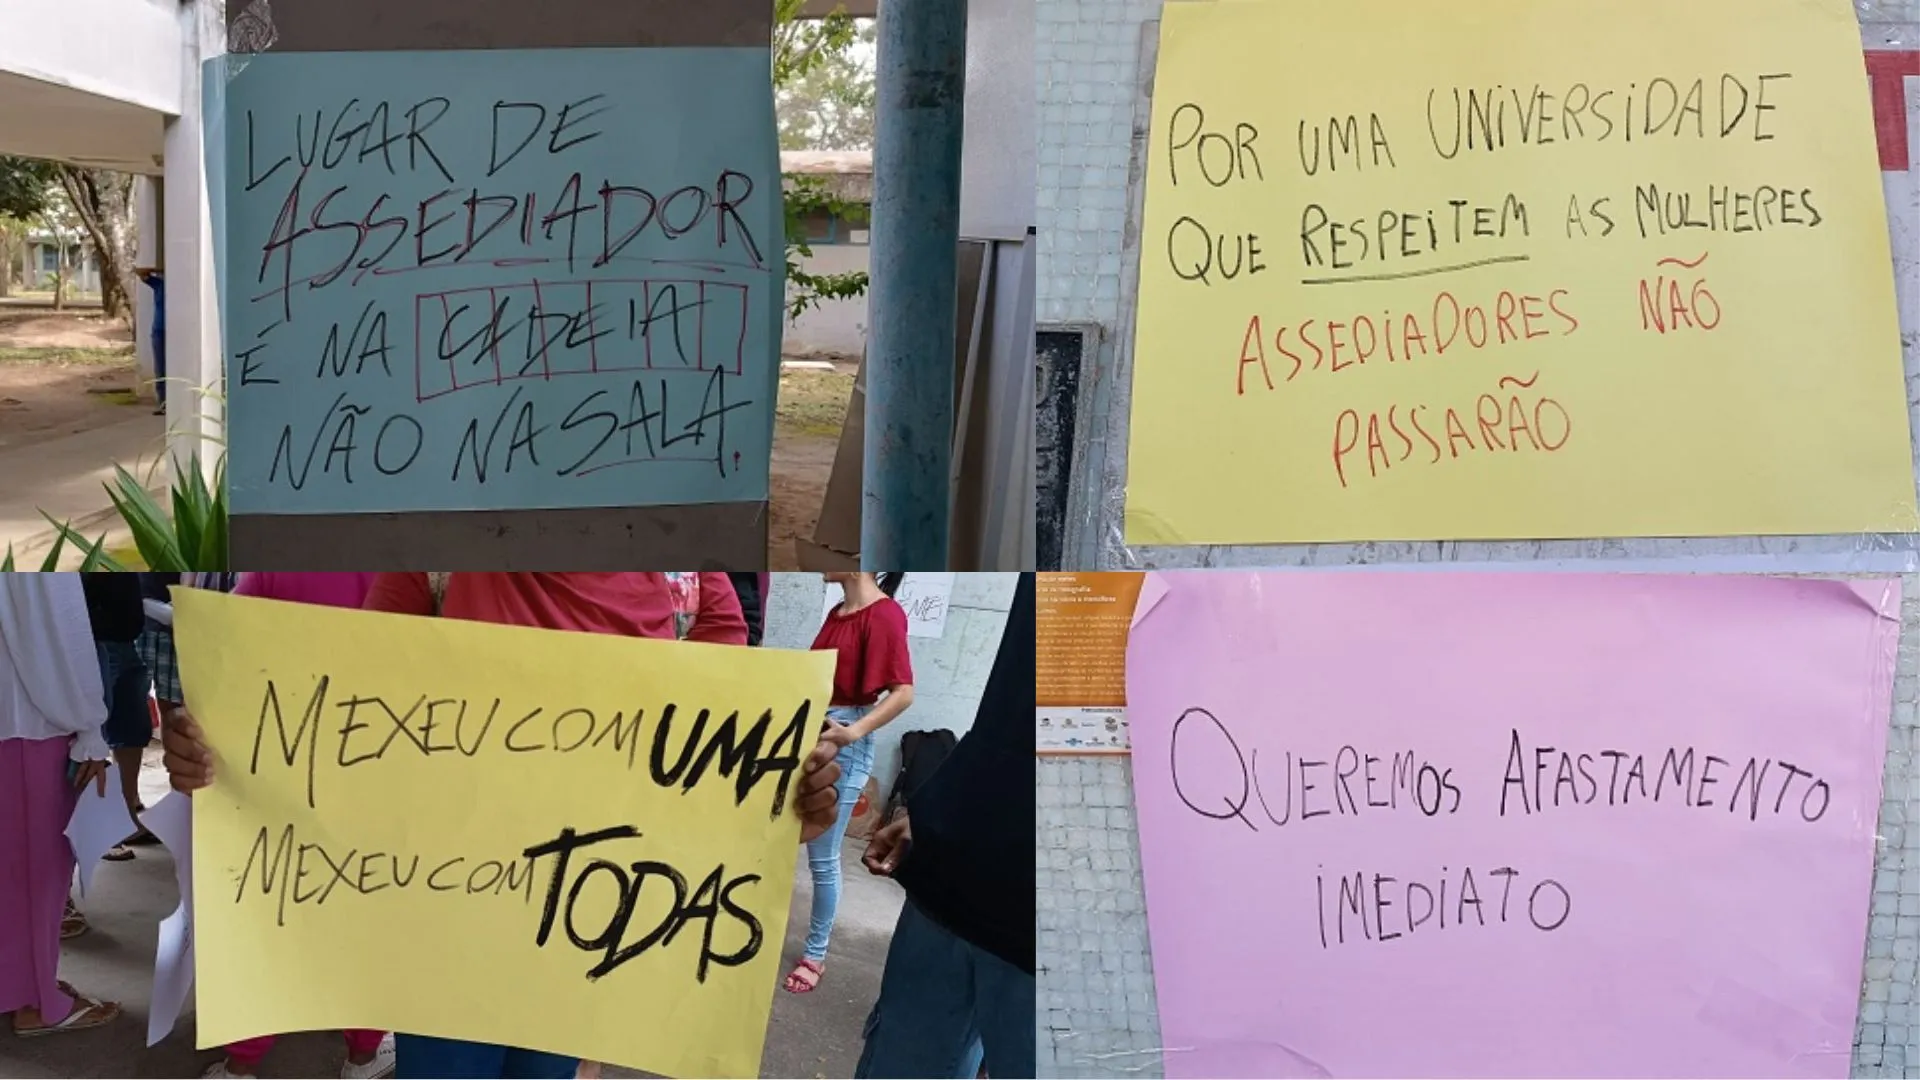 LUGAR DE
ASSEDIADOR
É NA CADEIA
NÃO NA SALA.
POR UMA UNIVERSIDADE
QUE RESPEITEM AS MULHERES
ASSEDIADORES NÃO
PASSARÃO
MEXEU COM UMA
MEXEU COM TODAS
QUEREMOS AFASTAMENTO
IMEDIATO